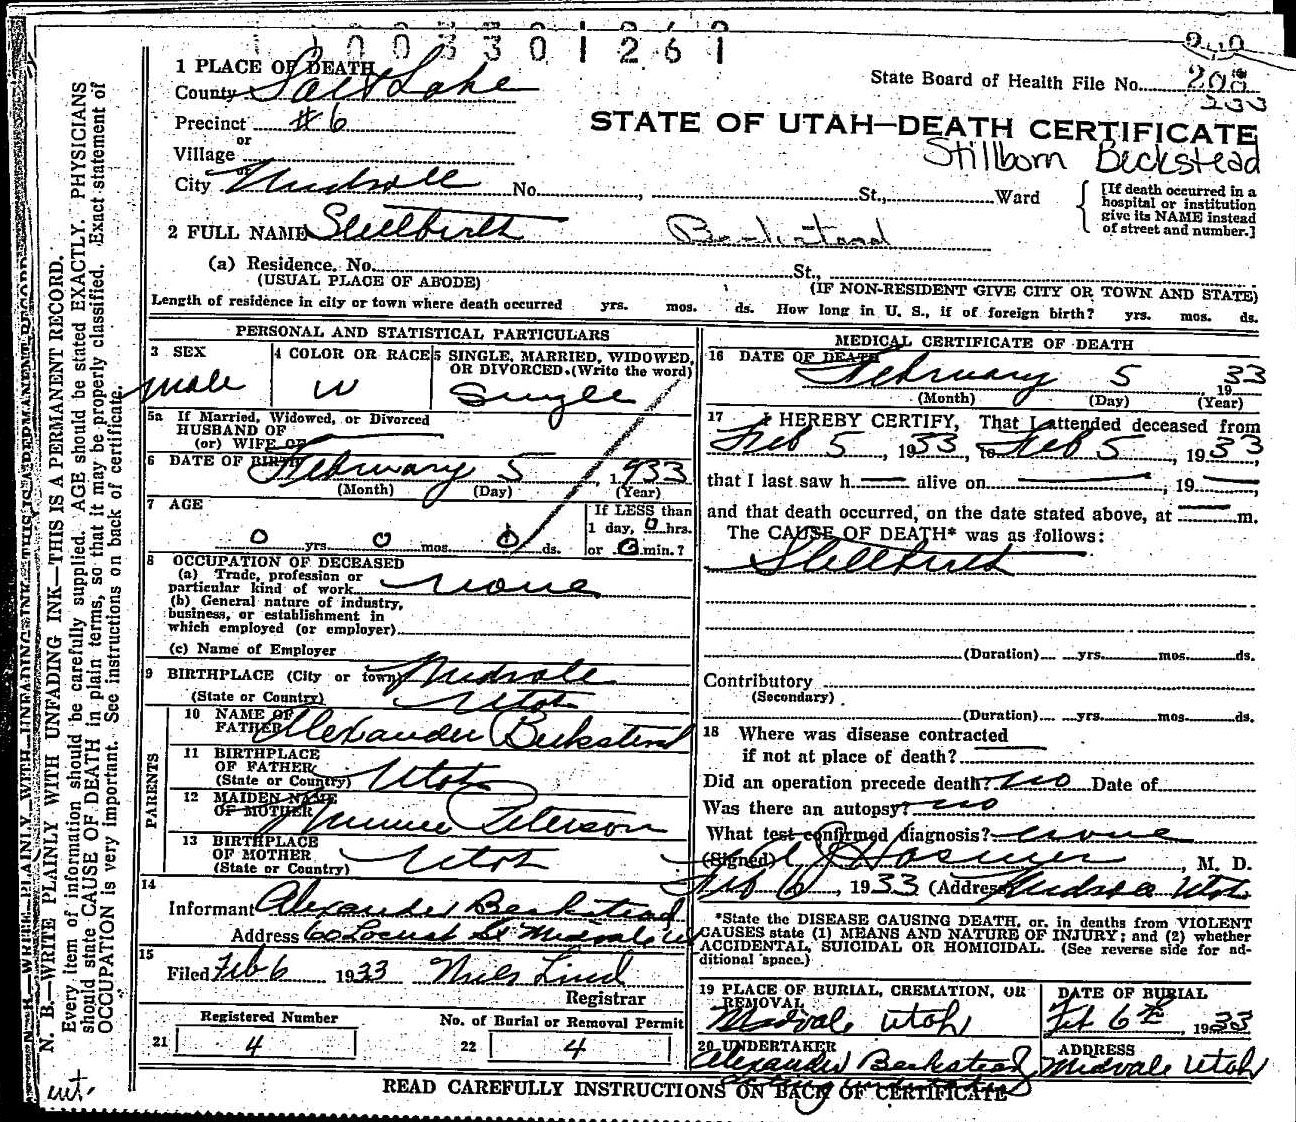 1 0 0 3 3 0 1 2 6 1
1 PLACE OF DEATH
County Salt Lake
State Board of Health File No. 200
233
Precinct #6
STATE OF UTAH—DEATH CERTIFICATE
Stillborn Beckstead
or
Village
or
City Midvale No. , St., Ward
[If death occurred in a hospital or institution give its NAME instead of street and number.]
2 FULL NAME Stillbirth Beckstead
(a) Residence. No. St.,
(USUAL PLACE OF ABODE) (IF NON-RESIDENT GIVE CITY OR TOWN AND STATE)
Length of residence in city or town where death occurred yrs. mos. ds. How long in U. S., if of foreign birth? yrs. mos. ds.
PERSONAL AND STATISTICAL PARTICULARS
3 SEX
male
4 COLOR OR RACE
W
5 SINGLE, MARRIED, WIDOWED, OR DIVORCED. (Write the word)
Single
5a If Married, Widowed, or Divorced
HUSBAND OF
(or) WIFE OF
6 DATE OF BIRTH February 5, 1933
(Month) (Day) (Year)
7 AGE
0 yrs. 0 mos. 0 ds.
If LESS than
1 day, 0 hrs.
or 0 min.?
8 OCCUPATION OF DECEASED
(a) Trade, profession or
particular kind of work none
(b) General nature of industry,
business, or establishment in
which employed (or employer)
(c) Name of Employer
9 BIRTHPLACE (City or town) Midvale
(State or Country) Utah
PARENTS
10 NAME OF
FATHER Alexander Beckstead
11 BIRTHPLACE
OF FATHER
(State or Country) Utah
12 MAIDEN NAME
OF MOTHER Minnie Peterson
13 BIRTHPLACE
OF MOTHER
(State or Country) Utah
14
Informant Alexander Beckstead
Address 60 Locust St Midvale U
15
Filed Feb 6 1933 Niels Lind
Registrar
Registered Number
21 4
No. of Burial or Removal Permit
22 4
MEDICAL CERTIFICATE OF DEATH
16 DATE OF DEATH
February 5 1933
(Month) (Day) (Year)
17 I HEREBY CERTIFY, That I attended deceased from
Feb 5, 1933, to Feb 5, 1933,
that I last saw h alive on , 19 ,
and that death occurred, on the date stated above, at m.
The CAUSE OF DEATH* was as follows:
Stillbirth
(Duration) yrs. mos. ds.
Contributory
(Secondary)
(Duration) yrs. mos. ds.
18 Where was disease contracted
if not at place of death?
Did an operation precede death? no Date of
Was there an autopsy? no
What test confirmed diagnosis? none
(Signed) Hosmer, M. D.
Feb 6, 1933 (Address) Midvale Utah
*State the DISEASE CAUSING DEATH, or, in deaths from VIOLENT
CAUSES state (1) MEANS AND NATURE OF INJURY; and (2) whether
ACCIDENTAL, SUICIDAL OR HOMICIDAL. (See reverse side for ad-
ditional space.)
19 PLACE OF BURIAL, CREMATION, OR
REMOVAL
Midvale Utah
DATE OF BURIAL
Feb 6th, 1933
20 UNDERTAKER
Alexander Beckstead
Acting undertaker
ADDRESS
Midvale Utah
READ CAREFULLY INSTRUCTIONS ON BACK OF CERTIFICATE
N. B.—WRITE PLAINLY WITH UNFADING INK—THIS IS A PERMANENT RECORD.
Every item of information should be carefully supplied. AGE should be stated EXACTLY. PHYSICIANS
should state CAUSE OF DEATH in plain terms, so that it may be properly classified. Exact statement of
OCCUPATION is very important. See instructions on back of certificate.